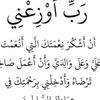 رَبِّ أَوْزِعْنِي
أَنْ أَشْكُرَ نِعْمَتَكَ الَّتِي أَنْعَمْتَ
عَلَيَّ وَعَلَىٰ وَالِدَيَّ وَأَنْ أَعْمَلَ صَالِحًا
تَرْضَاهُ وَأَدْخِلْنِي بِرَحْمَتِكَ فِي